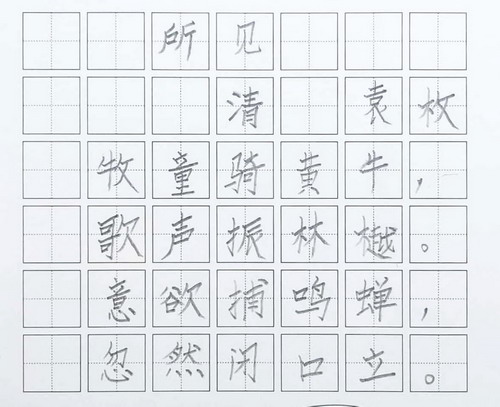 所见
清 袁枚
牧童骑黄牛，
歌声振林樾。
意欲捕鸣蝉，
忽然闭口立。